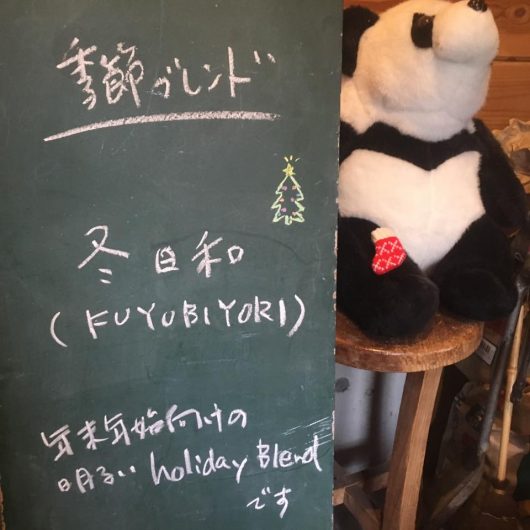 季節ブレンド
冬日和
(FUYUBIYORI)
年末年始向けの
明るい holiday Blend
です